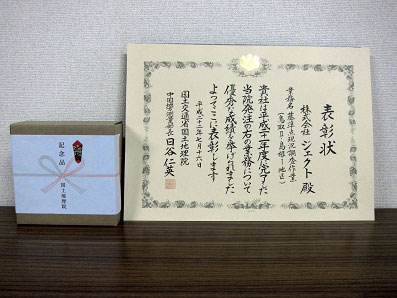 表彰状
株式会社 ジェクト 殿
業務名 基準点現況調査作業
(鳥取Ⅱ・島根Ⅰ地区)
貴社は平成二十一年度に完了した
当院発注の右の業務について
優秀な成績を挙げられました
よってここに表彰します
平成二十二年七月十六日
国土交通省国土地理院
中国地方測量部長 日谷 仁英
記念品
国土地理院